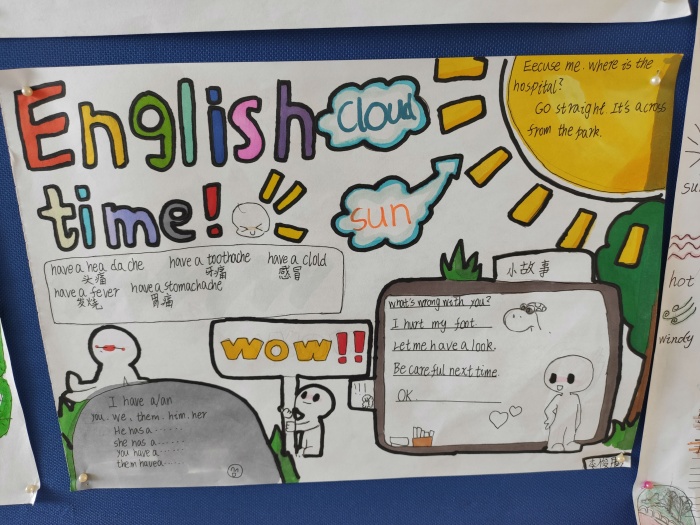 English
time!
Cloud
sun
Eecuse me. where is the
hospital?
Go straight. It's across
from the park.
have a hea da che have a toothache have a clold
头痛 牙痛 感冒
have a fever have a stomachache
发烧 胃痛
WOW!!
小故事
what's wrong with you?
I hurt my foot
Let me have a look.
Be care ful next time.
OK
I have a/an
you. we. them. him. her
He has a ......
she has a ......
you have a .....
them have a .....
su
hot
windy